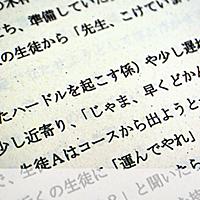 ち、準備していた
の生徒から「先生、こけていま
たハードルを起こす係）や少し選
少し近寄り、「じゃま、早くどかん
生徒Ａはコースから出ようと
生徒に「運んでやれ」
と聞いたら